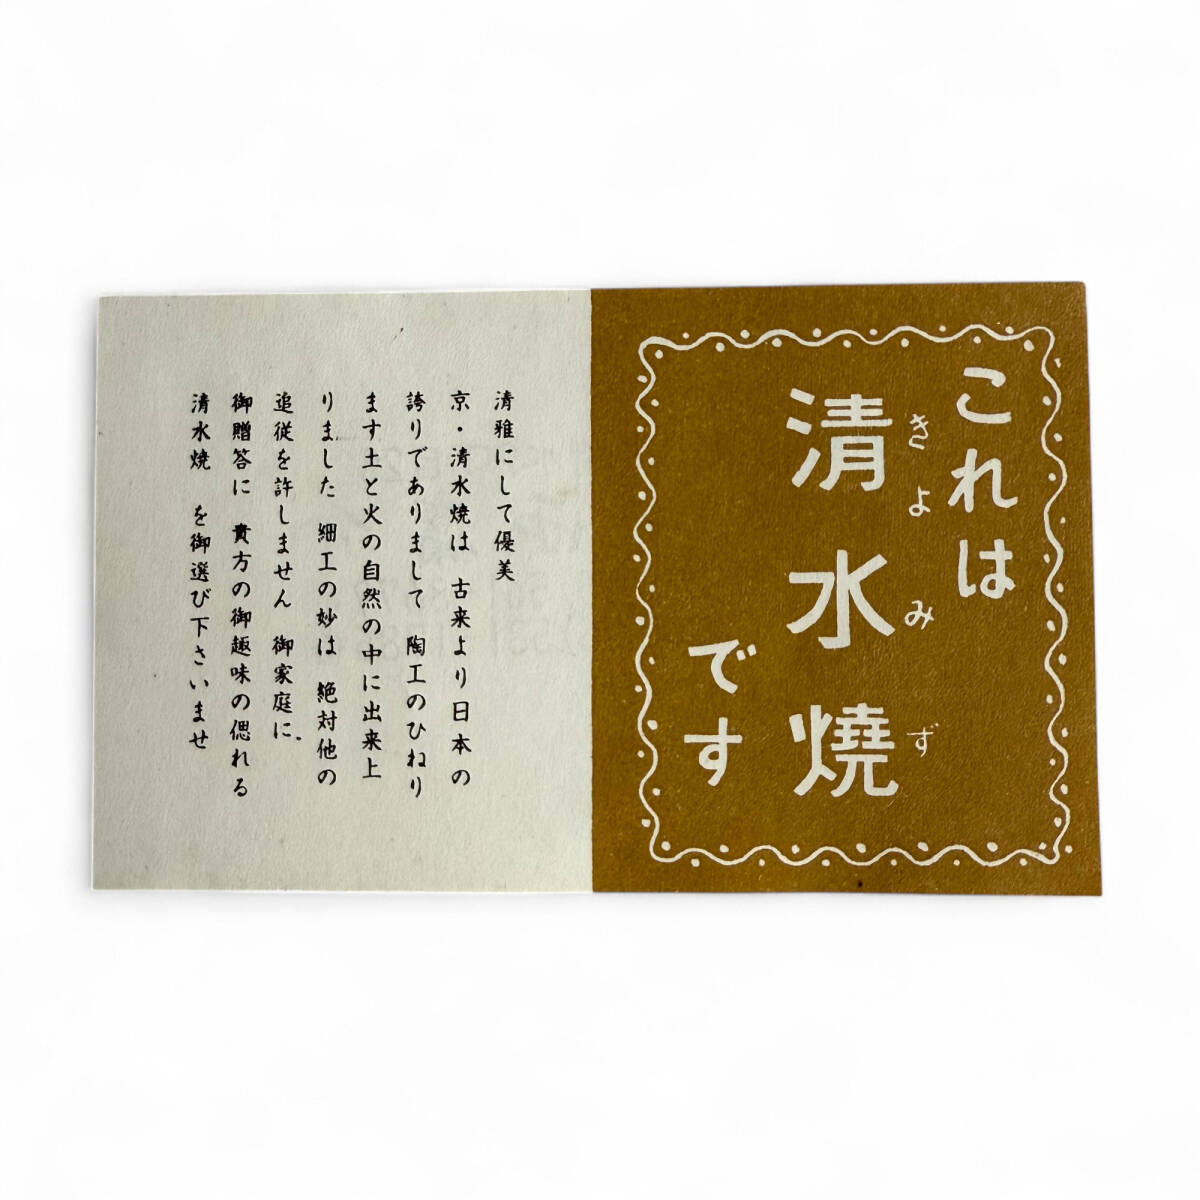 これは
清水焼
きよみず
です
清雅にして優美
京・清水焼は 古来より日本の
誇りでありまして 陶工のひねり
ます土と火の自然の中に出来上
りました 細工の妙は 絶対他の
追従を許しません 御家庭に、
御贈答に 貴方の御趣味の偲れる
清水焼 を御選び下さいませ